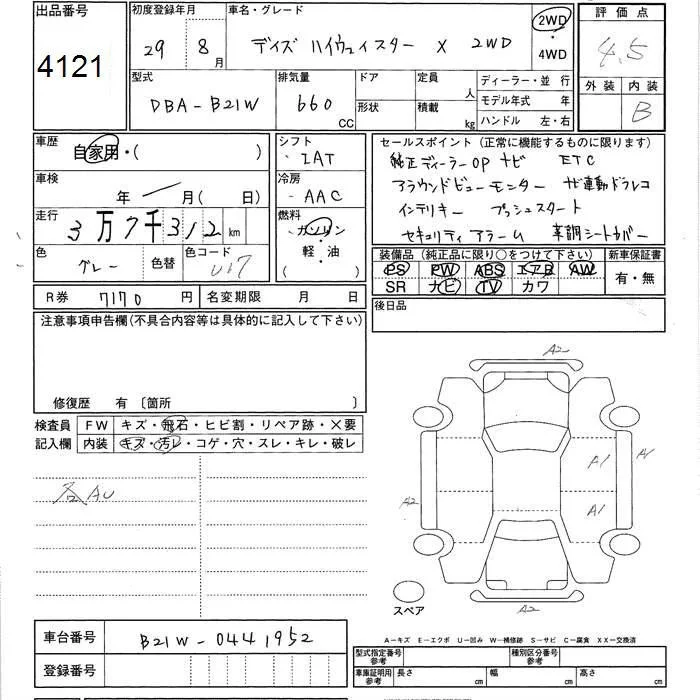 出品番号
4121
初度登録年月
29 8月
車名・グレード
デイズ ハイウェイスター X 2WD
2WD
・
4WD
評価点
4.5
外装 内装
B
型式
DBA-B21W
排気量
660 CC
ドア
形状
定員 人
積載 kg
ディーラー・並行
モデル年式 年
ハンドル 左・右
車歴
自家用・( )
車検
年 月(日)
走行
3万7千312km
色
グレー
色替
色コード
シフト
IAT
冷房
AAC
燃料
ガソリン
・
軽・油
( )
セールスポイント (正常に機能するものに限ります)
純正ディーラーOP ナビ ETC
アラウンドビューモニター ナビ連動ドラレコ
インテリキー プッシュスタート
セキュリティアラーム 革調シートカバー
装備品 (純正品に限り○をつけて下さい)
PS PW ABS エアB AW
SR ナビ TV カワ
新車保証書
有・無
R券 7170 円
名変期限 月 日
後日品
注意事項申告欄(不具合内容等は具体的に記入して下さい)
修復歴 有 〔箇所 〕
検査員
記入欄
FW キズ・飛石・ヒビ割・リペア跡・×要
内装 キズ・汚レ・コゲ・穴・スレ・キレ・破レ
各AU
A2
A1
A1
A2
A1
A2
スペア
車台番号
B21W-0441952
登録番号
A-キズ E-エクボ U-凹み W-補修跡 S-サビ C-腐食 XX-交換済
型式指定番号
参考
種別区分番号
参考
車庫証明用
参考
長さ cm
幅 cm
高さ cm